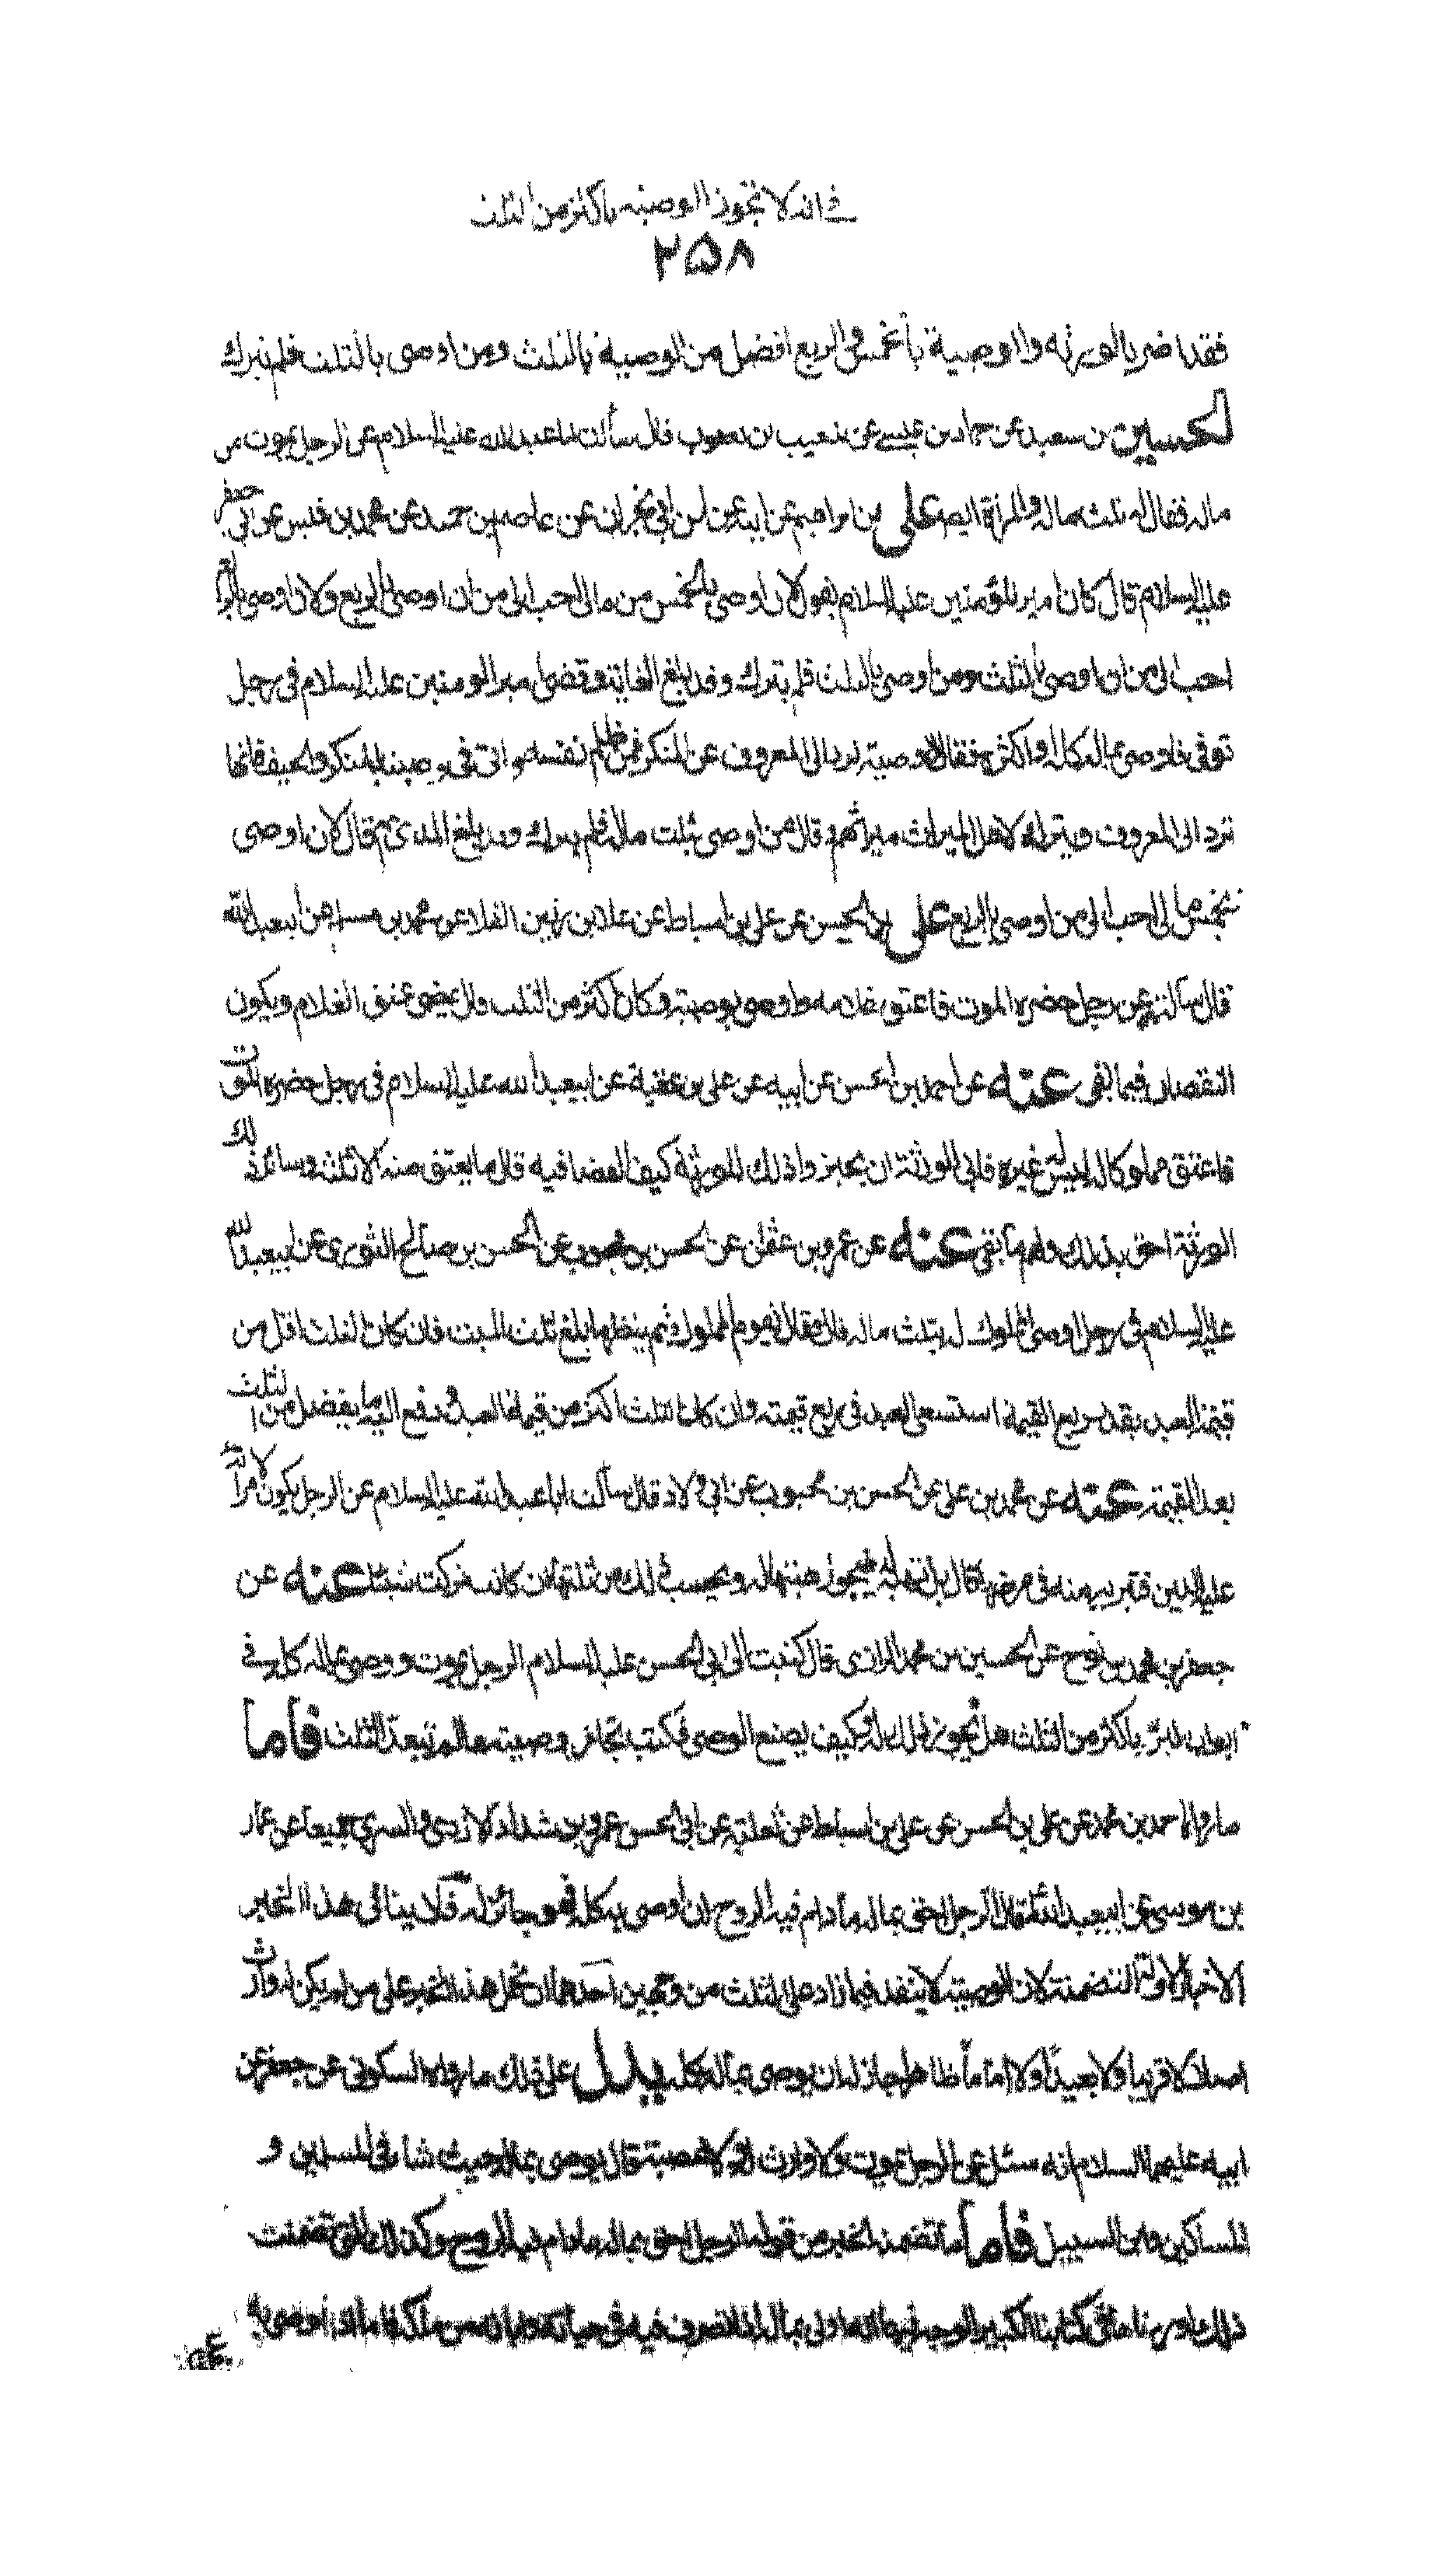 في انه لا تجوز الوصية باكثر من الثلث
٢٥٨
فقد اضر بالورثه والوصية بالخمس والربع افضل من الوصية بالثلث ومن اوصى بالثلث فلم يترك
الحسين بن سعيد عن حماد بن عيسى عن شعيب بن يعقوب قال سألت ابا عبد الله عليه السلام عن الرجل يموت من
ماله فقال له ثلث ماله وللمراة ايضا علي بن ابراهيم عن ابيه عن ابن ابي نجران عن عاصم بن حميد عن محمد بن قيس عن ابي جعفر
عليه السلام قال كان امير المؤمنين عليه السلام يقول لان اوصى بالخمس من مالي احب الي من ان اوصى بالربع ولان اوصى بالربع
احب الي من ان اوصى بالثلث ومن اوصى بالثلث فلم يترك وقد بلغ الغاية وقضى امير المومنين عليه السلام في رجل
توفى فاوصى بماله كله او اكثره فقال الوصية ترد الى المعروف عن المنكر فمن ظلم نفسه واتى في وصيته المنكر والحيف فانها
ترد الى المعروف ويترك لاهل الميراث ميراثهم وقال من اوصى بثلث ماله فلم يترك وقد بلغ المدى ثم قال لان اوصى
بخمس مالي احب الي من اوصى بالربع علي بن الحسن عن علي بن اسباط عن علاء بن رزين القلا عن محمد بن مسلم عن ابيعبد الله
قال سالته عن رجل حضره الموت فاعتق غلامه واوصى بوصيته وكان اكثر من الثلث قال يمضى عتق الغلام ويكون
النقصان فيما بقى عنه عن احمد بن الحسن عن ابيه عن علي بن عقبة عن ابيعبد الله عليه السلام في رجل حضره الموت
فاعتق مملوكا له ليس له غيره فابى الورثة ان يجيز واذلك للورثة كيف القضا فيه قال ما يعتق منه الا ثلثه وسائر ذلك
الورثة احق بذلك ولهم ما بقى عنه عن عمرو بن عثمان عن الحسن بن محبوب عن الحسن بن صالح الثوري عن ابيعبد الله
عليه السلام في رجل اوصى لمملوك له بثلث ماله قال فقال يقوم المملوك ثم ينظر ما بلغ ثلث الميت فان كان الثلث اقل من
قيمة العبد بقدر ربع القيمة استسعى العبد في ربع قيمته وان كان الثلث اكثر من قيمة العبد دفع اليه ما يفضل من الثلث
بعد القيمة عنه عن محمد بن علي عن الحسن بن محبوب عن ابي ولاد قال سألت ابا عبد الله عليه السلام عن الرجل يكون لامرأته
عليه الدين فتبريه منه في مرضها قال بل تهبه له فيجوز هبتها له ويحسب ذلك من ثلثها ان كانت تركت شيئا عنه عن
جعفر بن محمد بن نوح عن الحسين بن محمد الرازي قال كتبت الى ابي الحسن عليه السلام الرجل يموت ووصى بماله كله في
ابواب البر باكثر من الثلث هل يجوز ذلك له وكيف يصنع الوصى فكتب تجاز وصيته ما لم يتعد الثلث فاما
ما رواه احمد بن محمد عن علي بن الحسن عن علي بن اسباط عن ثعلبة عن ابي الحسن عمرو بن شداد الازدي والسري جميعا عن عمار
بن موسى عن ابيعبد الله قال الرجل احق بماله ما دام فيه الروح ان اوصى به كله فهو جائز له فلا ينافي هذا الخبر
الاخبار الاولة المتضمنة لان الوصية لا ينفذ فيما زاد على الثلث من وجهين احدهما ان نحمل هذا الخبر على من لم يكن له وارث
اصلا لا قريبا ولا بعيدا ولا اماما ظاهرا جاز له ان يوصى بماله كله يدل على ذلك ما رواه السكوني عن جعفر عن
ابيه عليهما السلام انه سئل عن الرجل يموت ولا وارث له ولا عصبة قال يوصى بماله حيث شاء في المسلمين و
المساكين وابن السبيل فاما ما تضمنه الخبر من قوله الرجل احق بماله ما دام فيه الروح وكذلك التي تضمنت
ذلك اوردناها في كتابنا الكبير الوجه فيها انه اولى بماله